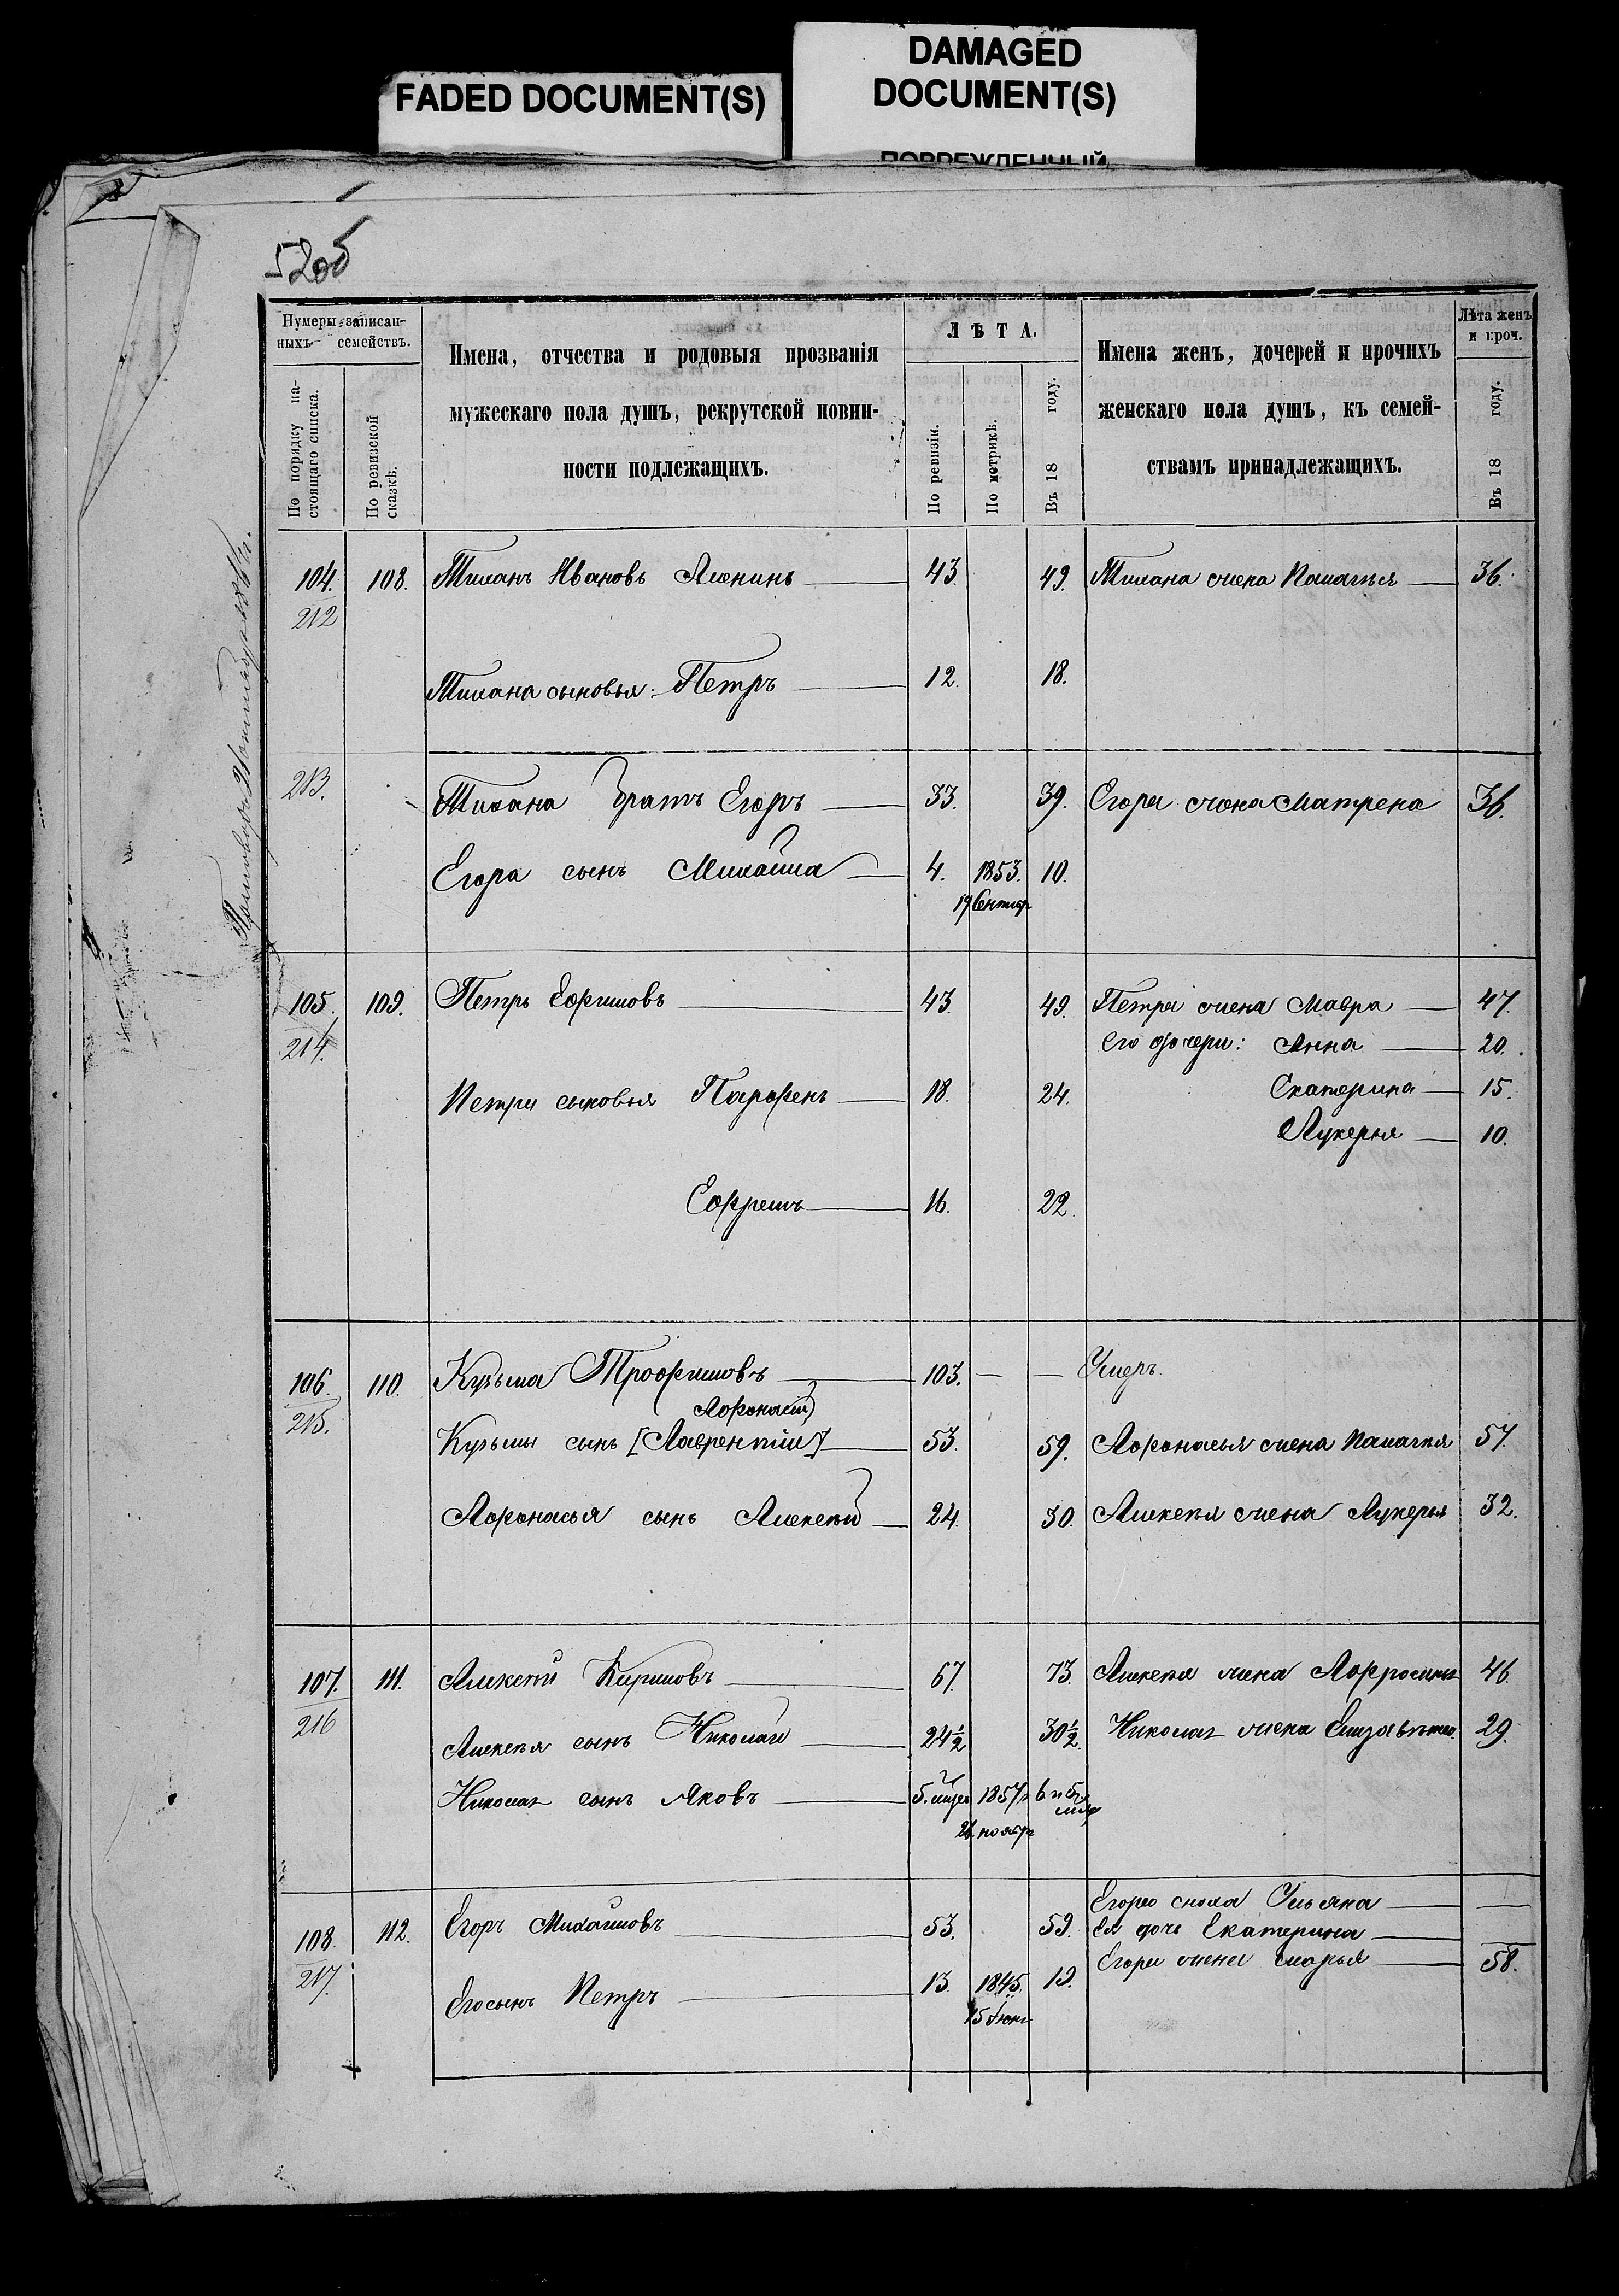 FADED DOCUMENT(S)
DAMAGED
DOCUMENT(S)
ПОВРЕЖДЕННЫЙ
52об
Нумеры записан-
ныхъ семействъ.
По порядку на-
стоящаго списка.
По ревизской
сказкѣ.
Имена, отчества и родовыя прозванія
мужескаго пола душъ, рекрутской повин-
ности подлежащихъ.
ЛѢТА.
По ревизіи.
По метрикѣ.
Въ 18 году.
Имена женъ, дочерей и прочихъ
женскаго пола душъ, къ семей-
ствамъ принадлежащихъ.
Лѣта женъ
и проч.
Въ 18 году.
104. 108. Тиханъ Ивановъ 43. 49. Тихана жена Палагья 36.
212
Тихана сыновья: Петръ 12. 18.
213. Тихана братъ Егоръ 33. 39. Егора жена Матрена 36.
Егора сынъ Михайла 4. 1853. 10.
19 Сентяр
105. 109. Петръ Ефимовъ 43. 49. Петра жена Мавра 47.
214. Его дочери: Анна 20.
Петра сыновья Парфенъ 18. 24. Екатерина 15.
Лукерья 10.
Ефремъ 16. 22.
106. 110. Кузьма Трофимовъ 103. — — Умеръ.
215. Афонасій
Кузьмы сынъ [Лаврентій] 53. 59. Афонасья жена Палагья 57.
Афонасья сынъ Алексѣй 24. 30. Алексѣя жена Лукерья 32.
107. 111. Алексѣй Кириловъ 67. 73. Алексѣя жена Афросинья 46.
216
Алексѣя сынъ Николай 24½ 30½. Николая жена Елизавѣта. 29.
Николая сынъ Яковъ 5. мѣся 1857 6 и 5
26. ноябр
Егора сноха Ульяна —
108. 112. Егоръ Михайловъ 53. 59. Ея дочь Екатерина —
217. Егора жена Марья 58.
Его сынъ Петръ 13. 1845. 19.
15 Іюня